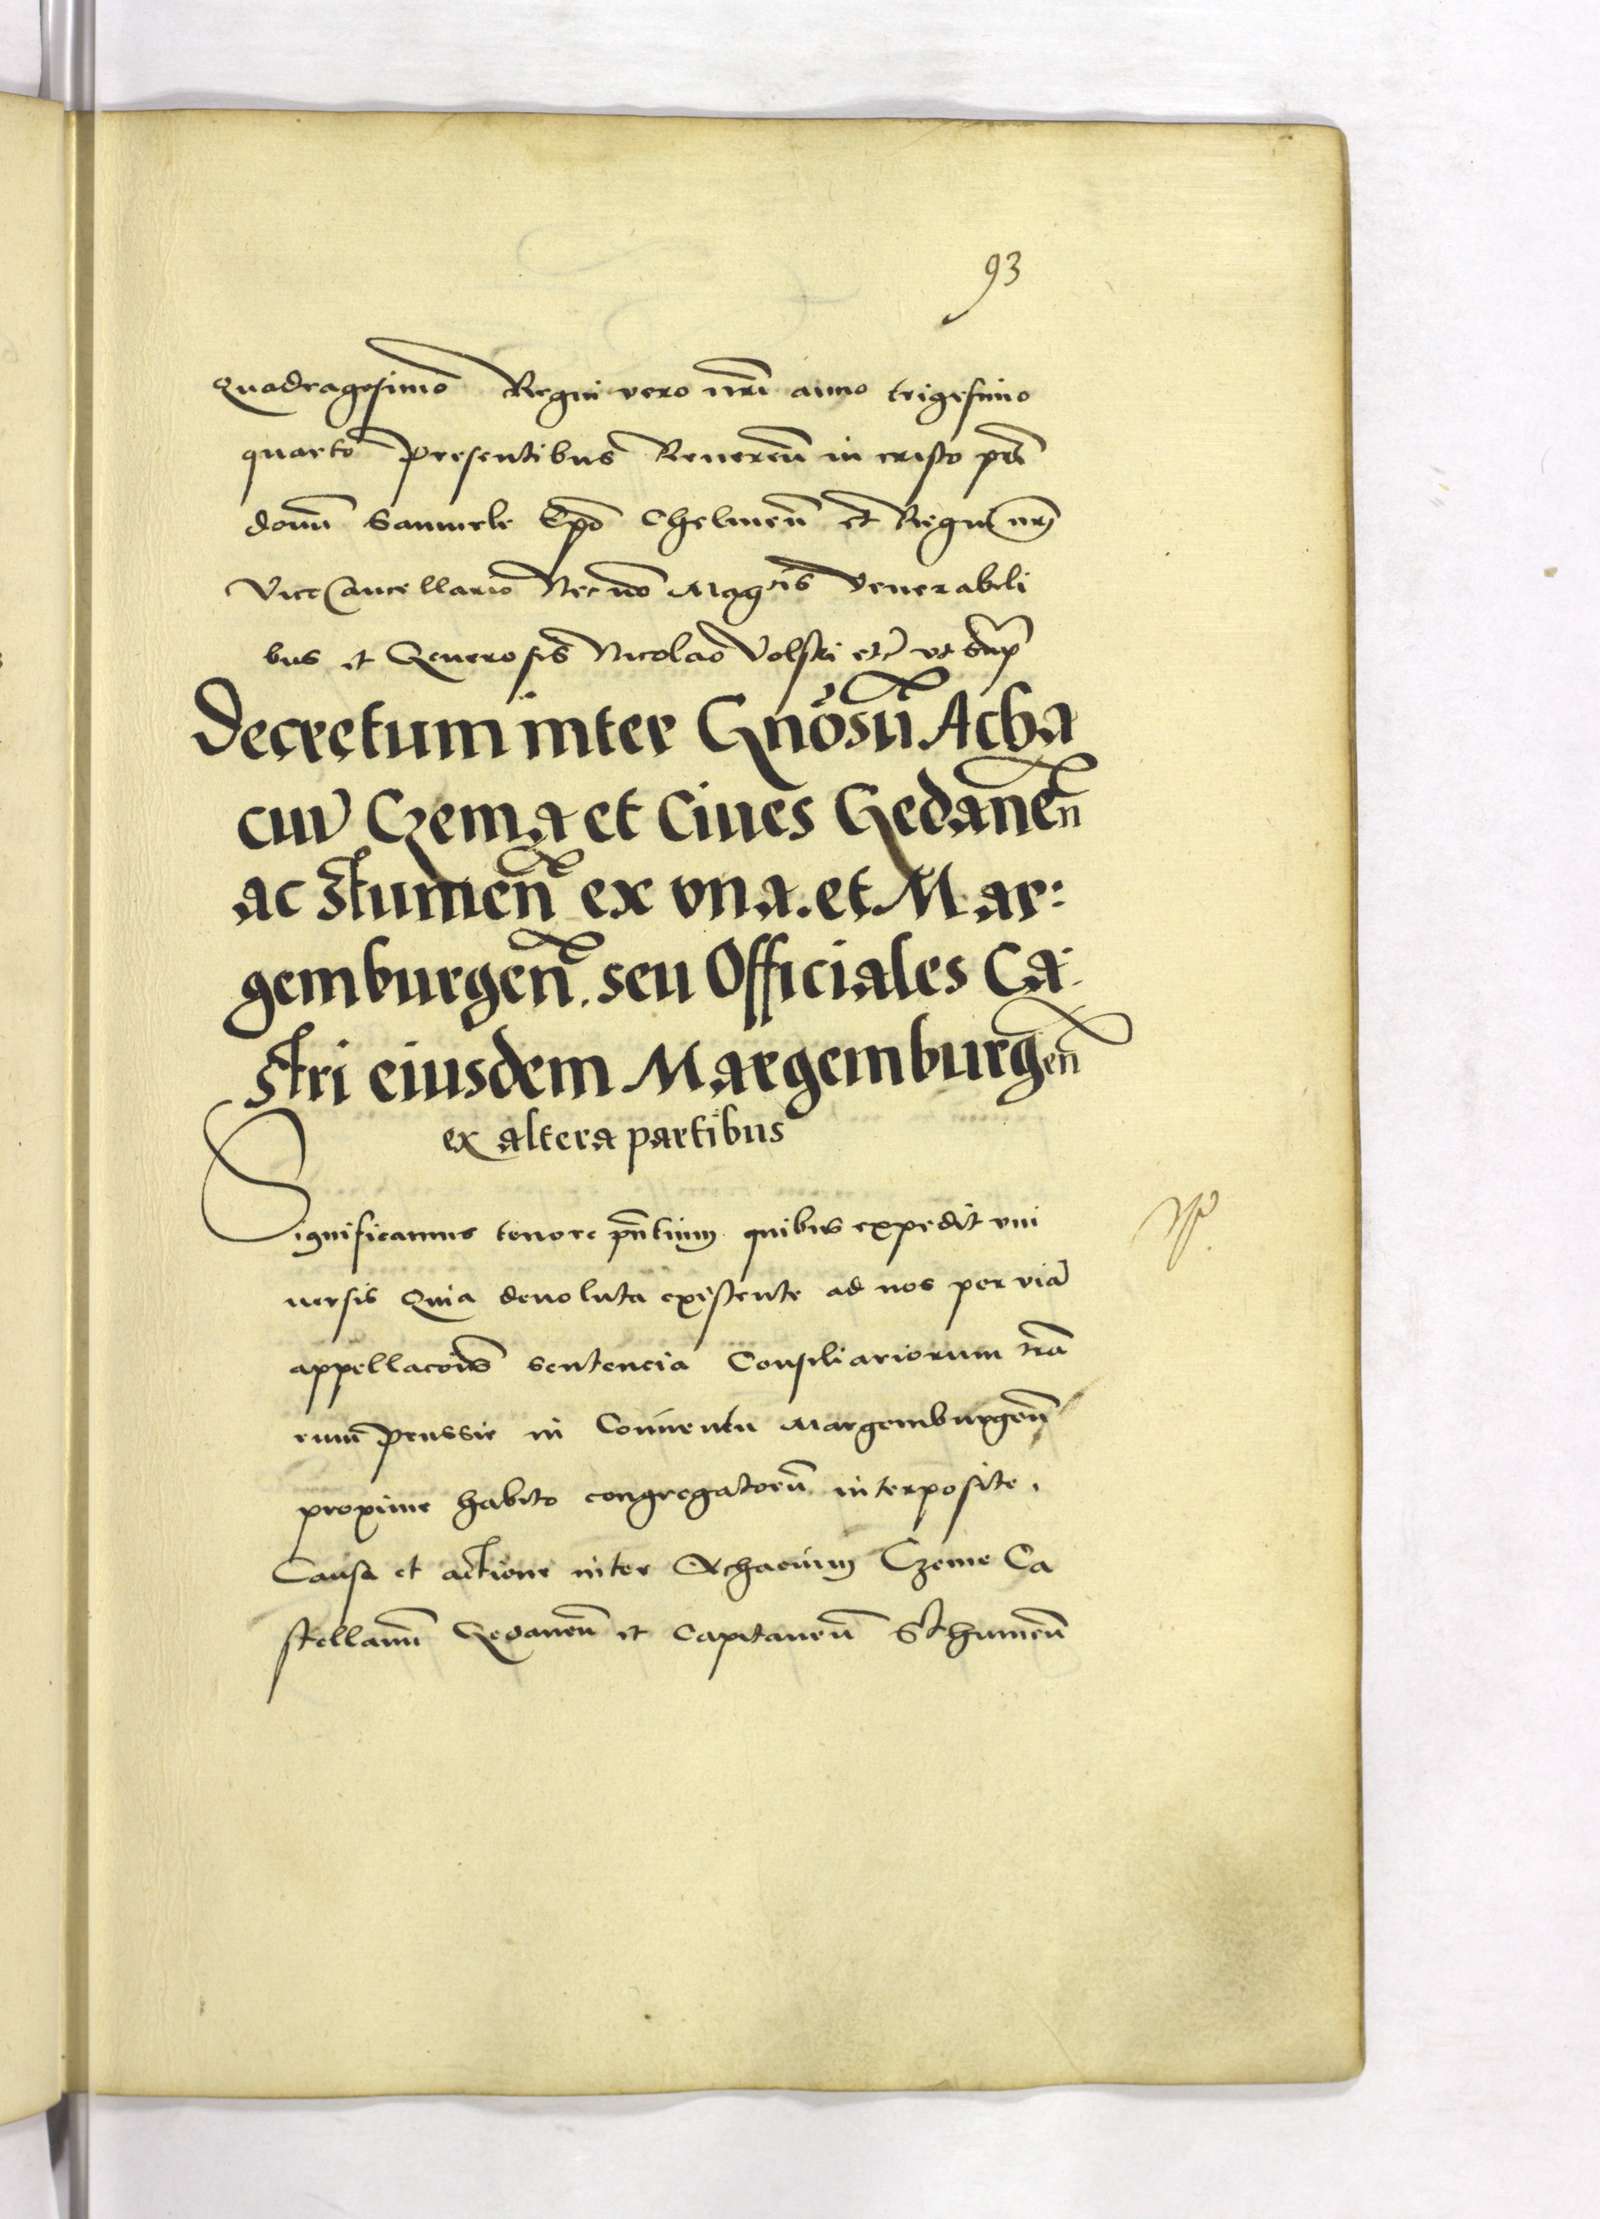 93
Quadragesimo Regni vero nrĩ anno trigesimo
quarto Presentibus Reueren̄ in cristo prĩ
domĩ Samuele Epõ Chelmen̄ et Regni nrĩ
Vicecancellario Nec nõ Mag̃cis Venerabili
bus et Generosis Nicolao Volski etc̃ vt Sup̃
Decretum inter Gnõsũ Acha
ciũ Czema et Ciues Gedanen̄
ac Stumen̄ ex vna. et Mar:
gemburgen̄. seu Officiales Ca:
stri eiusdem Margemburgen̄
ex altera partibus
Significamus tenore pñtium quibus expedit vni
uersis Quia deuoluta existente ad nos per viã
appellacõis sentencia Consiliariorum trã
rum Prussie in Conuentu Margemburgen̄
proxime habito congregatorũ interposite.
Causa et actione inter Achacium Czeme Ca
stellanũ Gedanen̄ et Capitaneũ Sthumen̄